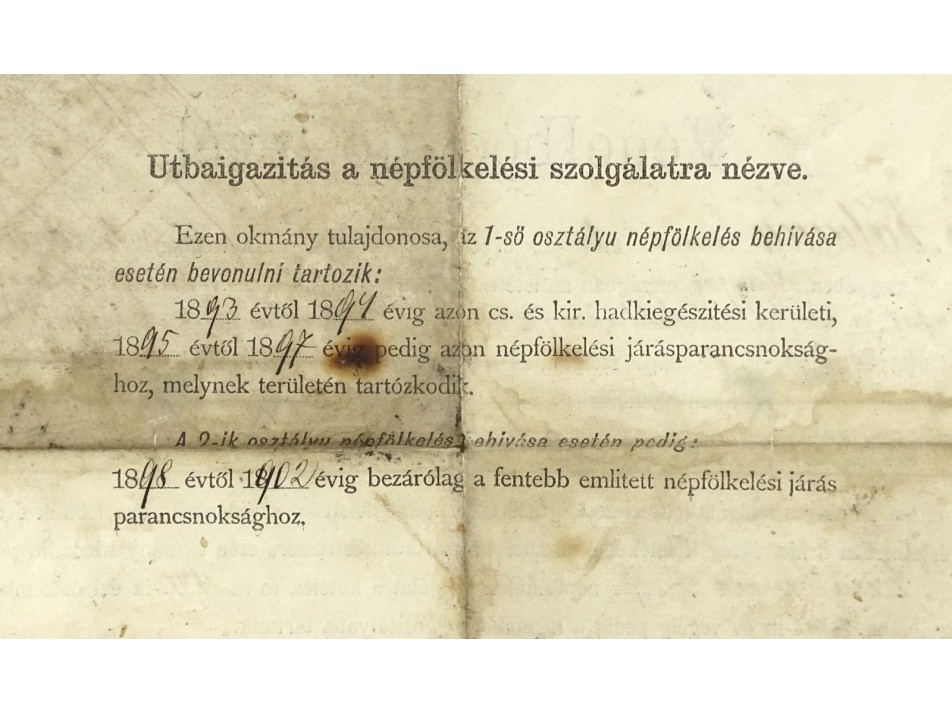 Utbaigazitás a népfölkelési szolgálatra nézve.
Ezen okmány tulajdonosa, az 1-ső osztályu népfölkelés behivása
esetén bevonulni tartozik:
1893 évtől 1894 évig azon cs. és kir. hadkiegészitési kerületi,
1895 évtől 1897 évig pedig azon népfölkelési járásparancsnokság-
hoz, melynek területén tartózkodik.
A 2-ik osztályu népfölkelés behivása esetén pedig:
1898 évtől 1902 évig bezárólag a fentebb emlitett népfölkelési járás
parancsnoksághoz.